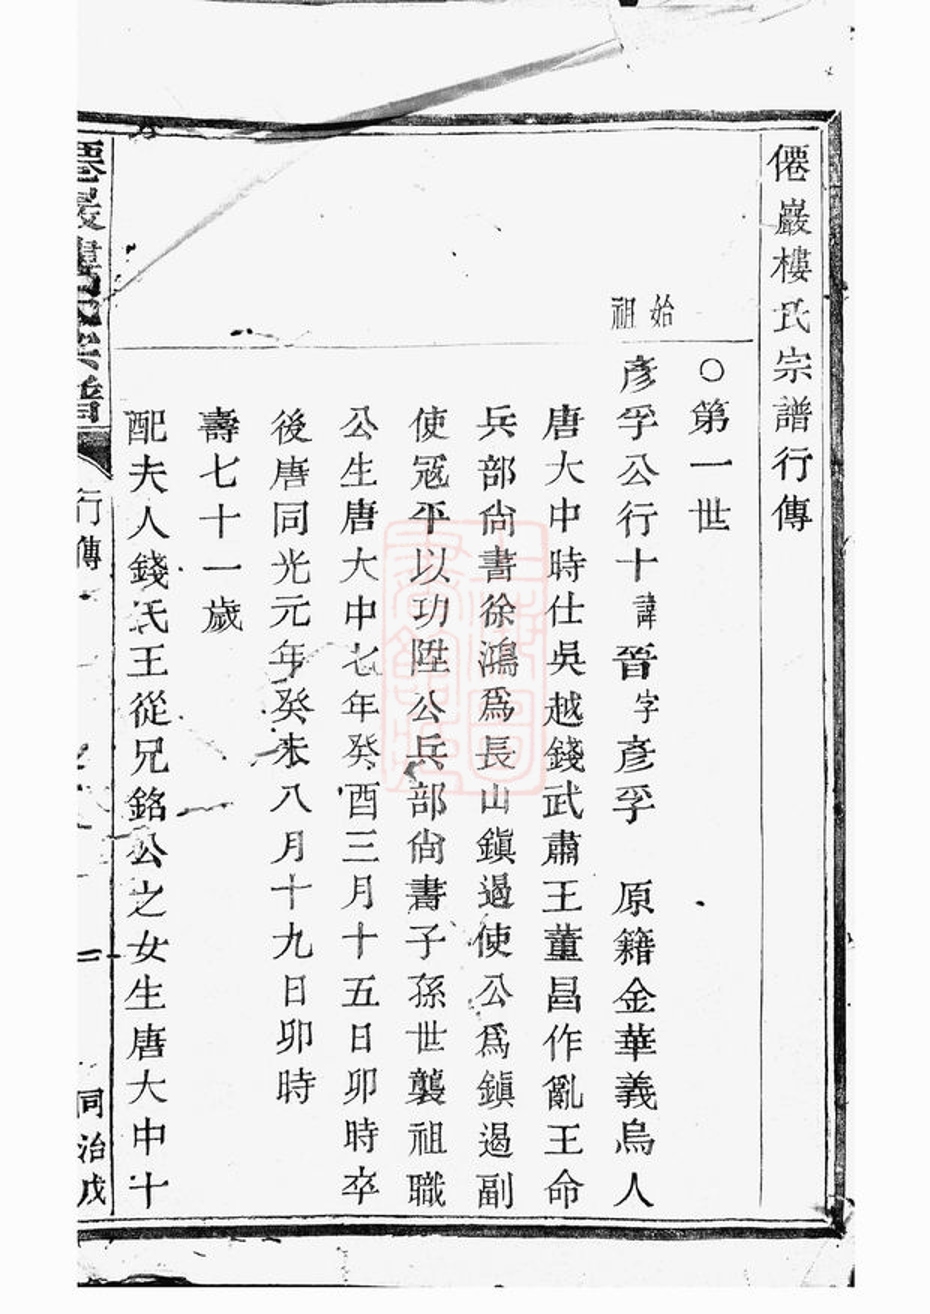 僊巖樓氏宗譜行傳
○第一世
始祖
彥孚公行十諱晉字彥孚　原籍金華義烏人
唐大中時仕吳越錢武肅王董昌作亂王命
兵部尙書徐鴻爲長山鎭遏使公爲鎭遏副
使冦平以功陞公兵部尙書子孫世襲祖職
公生唐大中七年癸酉三月十五日卯時卒
後唐同光元年癸未八月十九日卯時
壽七十一歲
配夫人錢氏王從兄銘公之女生唐大中十
行傳
一
同治戊